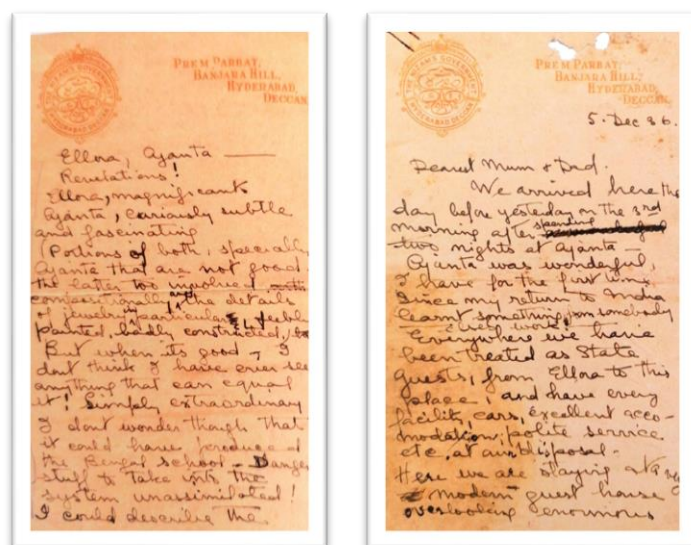 PREM PARBAT,
BANJARA HILL,
HYDERABAD,
DECCAN
Ellora, Ajanta —
Revelations!
Ellora, magnificent
Ajanta, curiously subtle
and fascinating
(Portions of both, specially
Ajanta that are not good.
the latter too involved
compositionally and the details
of jewelry particular feebly
painted, badly constructed,
But when its good, I
dont think I have ever see
anything that can equal
it! Simply extraordinary
I dont wonder though that
it could have produced
the Bengal school — Danger
stuff to take into the
system unassimilated!
I could describe the
THE NIZAM'S GOVERNMENT
HYDERABAD DECCAN
PREM PARBAT,
BANJARA HILL,
HYDERABAD,
DECCAN.
5. Dec 36.
Dearest Mum & Dad.
We arrived here the
day before yesterday on the 3rd
morning after spending
two nights at Ajanta —
Ajanta was wonderful,
I have for the first time
since my return to India
learnt something from somebody
else's work!
Everywhere we have
been treated as State
guests, from Ellora to this
place, and have every
facility, cars, excellent acco-
modation, polite service
etc, at our disposal.
Here we are staying at a
modern guest house
overlooking enormous